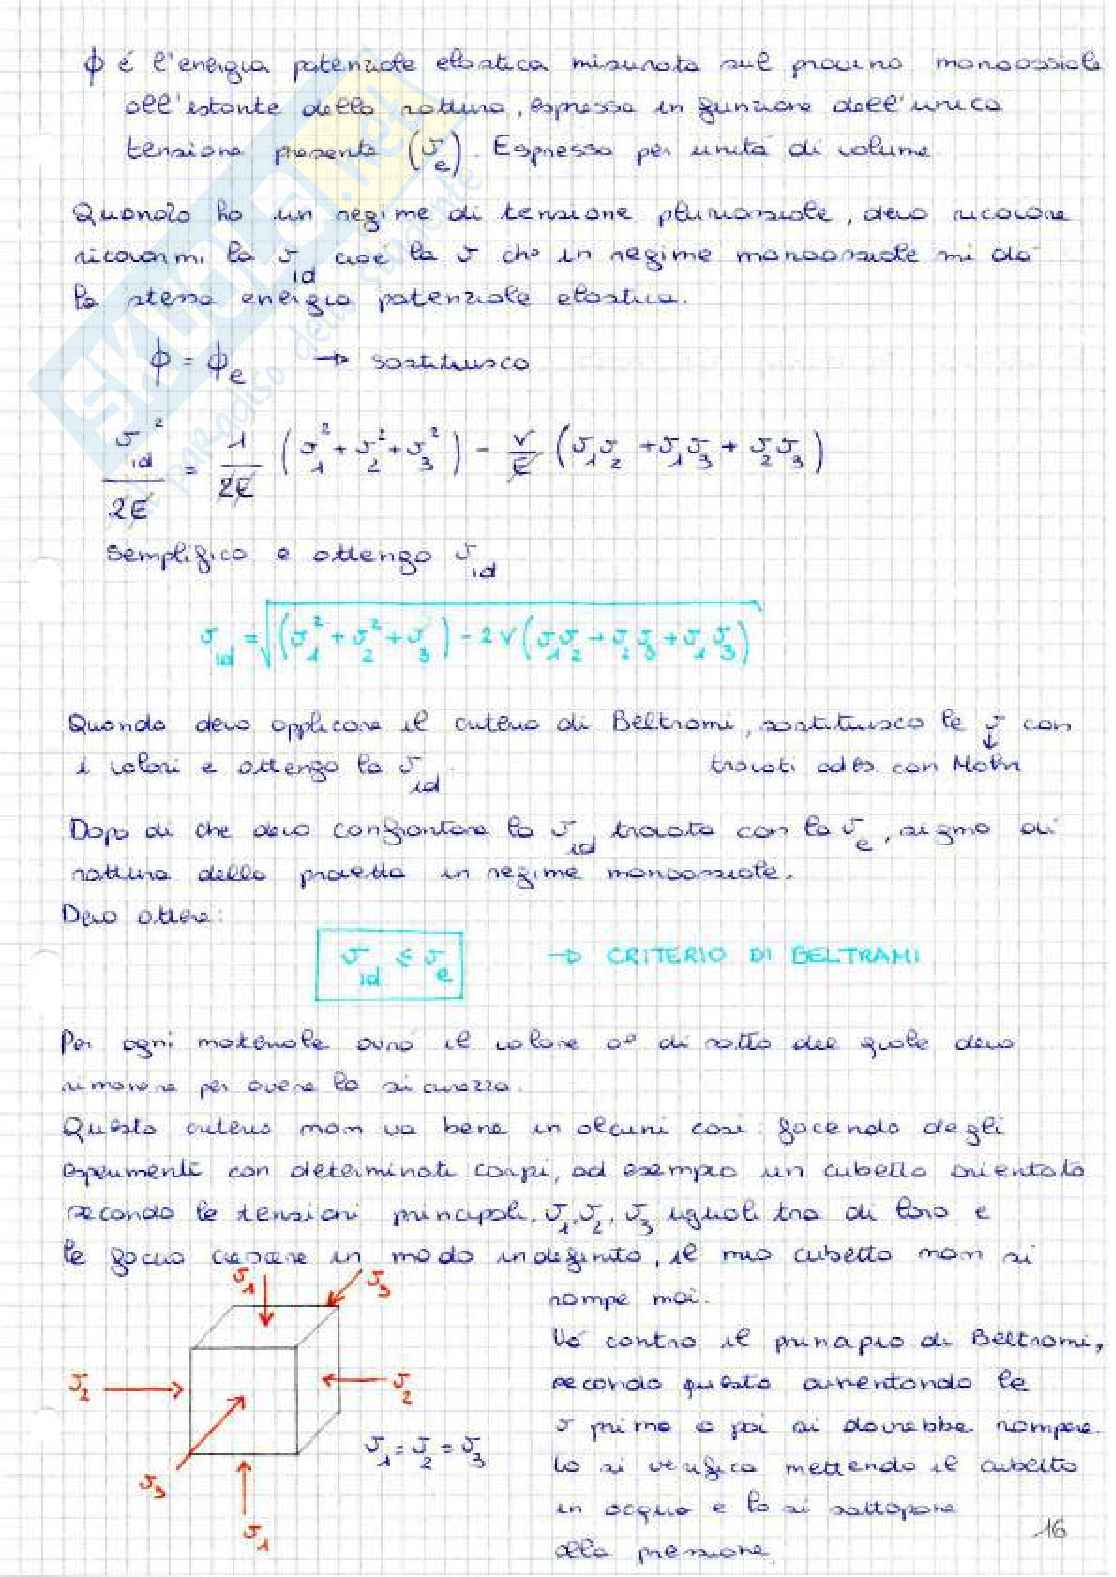 ϕ é l'energia potenziale elastica misurata sul provino monoassiale
all'istante della rottura, espressa in funzione dell'unica
tensione presente (σe). Espressa per unità di volume.
Quando ho un regime di tensione pluriassiale, devo
ricavarmi la σid cioè la σ che in regime monoassiale mi dà
la stessa energia potenziale elastica.
ϕ = ϕe → sostituisco
σid²/2E = 1/2E (σ1² + σ2² + σ3²) - ν/E (σ1σ2 + σ1σ3 + σ2σ3)
Semplifico e ottengo σid
σid = √((σ1² + σ2² + σ3²) - 2ν(σ1σ2 + σ2σ3 + σ1σ3))
Quando devo applicare il criterio di Beltrami, sostituisco le σ con
i valori e ottengo la σid. ↓ trovati ad es. con Mohr
Dopo di che devo confrontare la σid trovata con la σe, sigma di
rottura della provetta in regime monoassiale.
Devo avere:
σid ≤ σe → CRITERIO DI BELTRAMI
Per ogni materiale avrò il valore al di sotto del quale devo
rimanere per avere la sicurezza.
Questo criterio non va bene in alcuni casi: facendo degli
esperimenti con determinati corpi, ad esempio un cubetto orientato
secondo le tensioni principali, σ1, σ2, σ3 uguali tra di loro e
le faccio crescere in modo indefinito, il mio cubetto non si
rompe mai.
Và contro il principio di Beltrami,
secondo questo aumentando le
σ prima o poi si dovrebbe rompere.
Lo si verifica mettendo il cubetto
in acqua e lo si sottopone
alla pressione.
σ1
σ3
σ2
σ2
σ1 = σ2 = σ3
σ3
σ1
16
SKUOLA.net
il paradiso dello studente